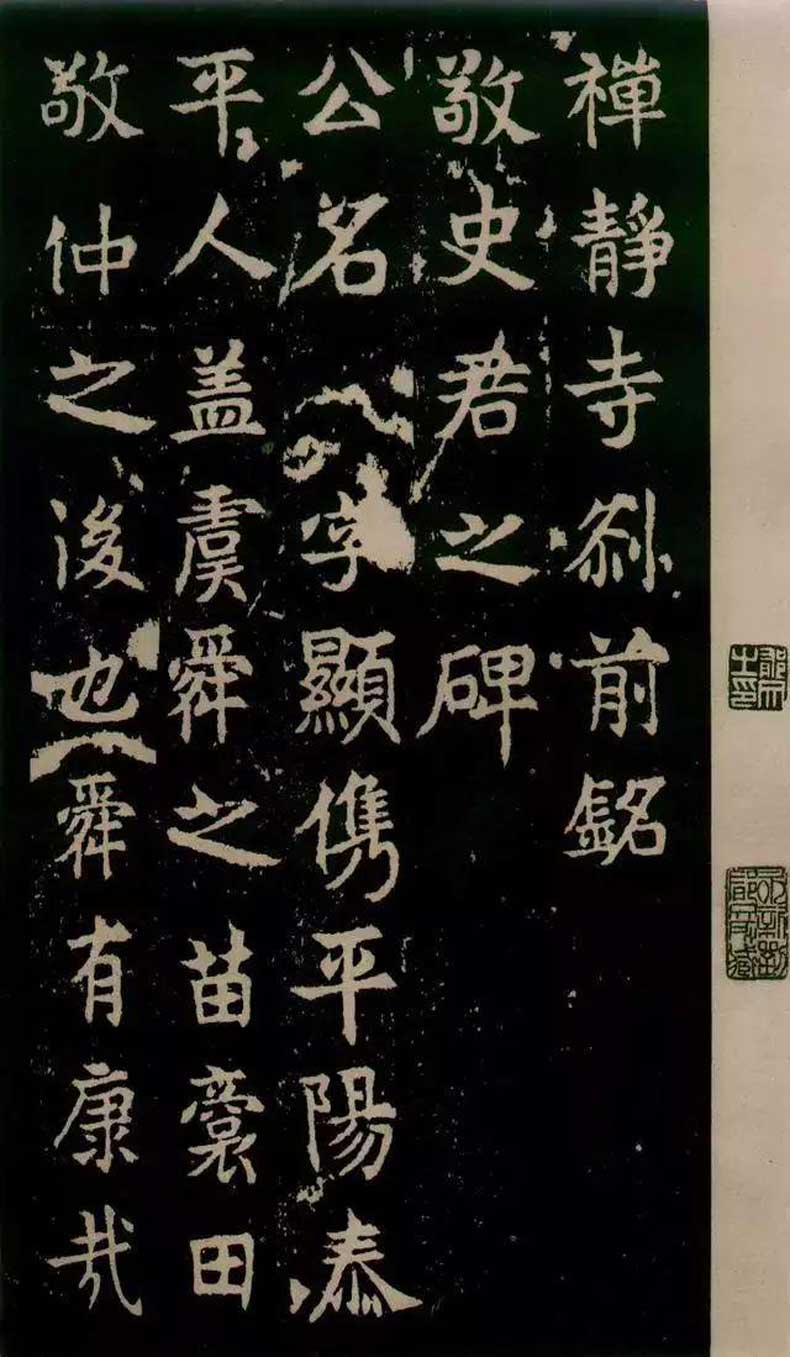 禪靜寺刹前銘
敬史君之碑
公名字顯儁平陽泰
平人盖虞舜之苗裔田
敬仲之後也舜有康哉